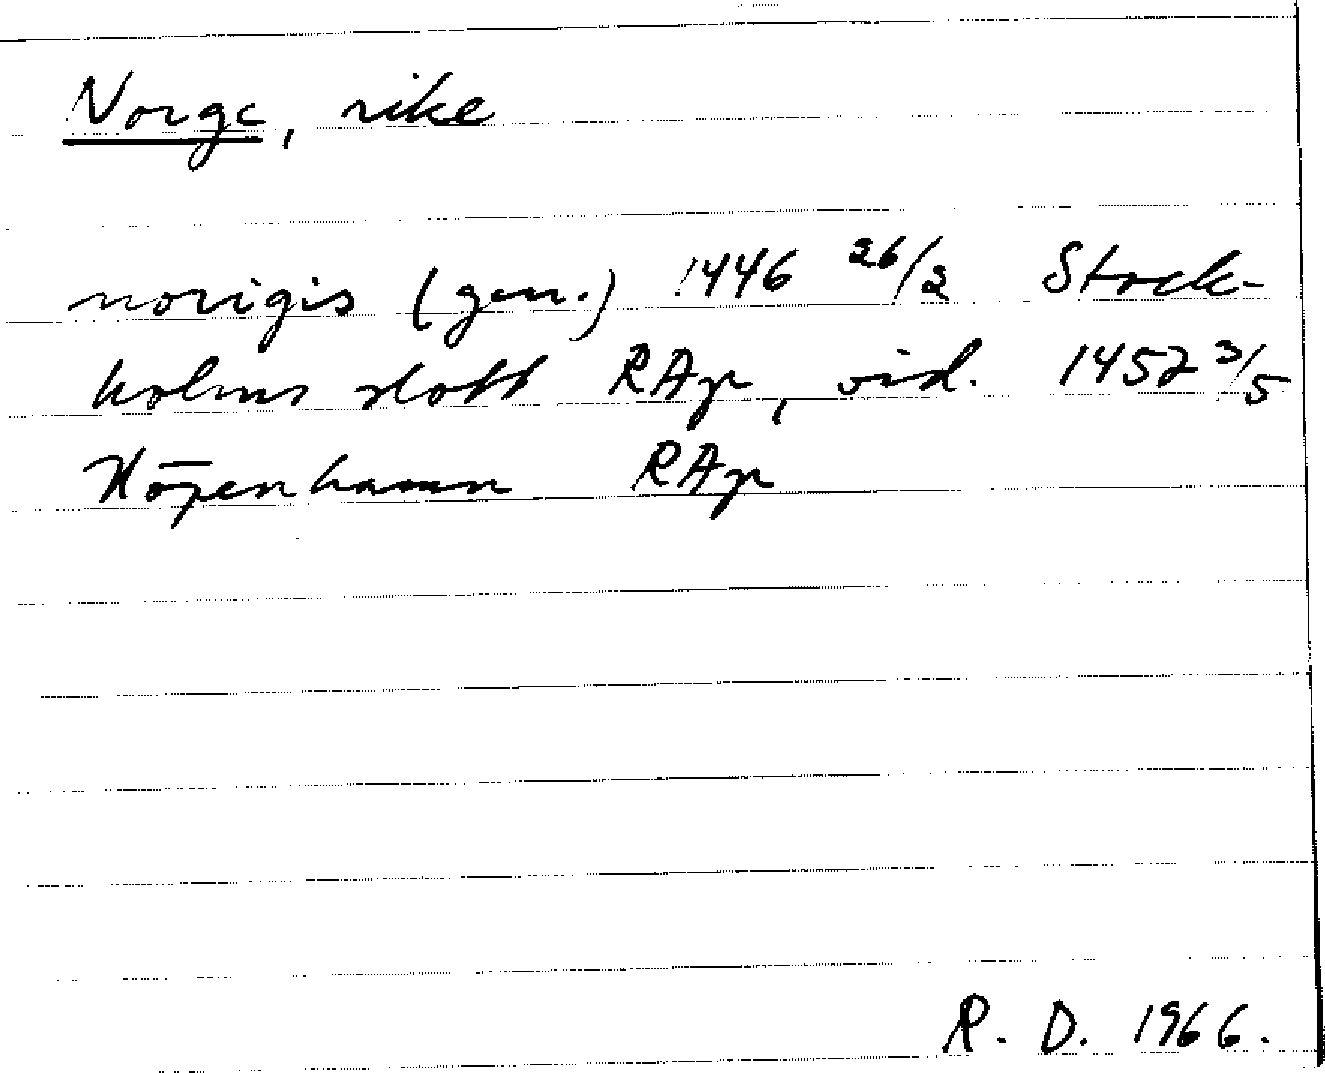 Norge, rike
norigis (gen.) 1446 26/2 Stock-
holms slott RAp, vid. 1452 3/5
Köpenhamn RAp
R. D. 1966.